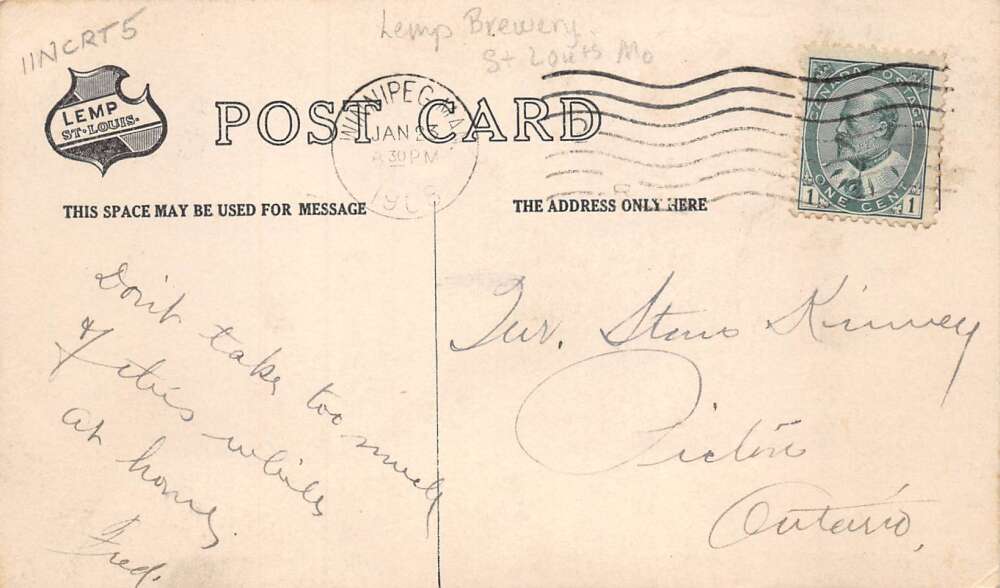 11NCRT5
Lemp Brewery
St Louis Mo
LEMP
ST. LOUIS.
POST CARD
WINNIPEG MAN
JAN 23
30 PM
CANADA POSTAGE
ONE CENT
1 1
THIS SPACE MAY BE USED FOR MESSAGE
THE ADDRESS ONLY HERE
Don't take too much
of this while
at home.
Fred.
Kinney
Picton
Ontario,